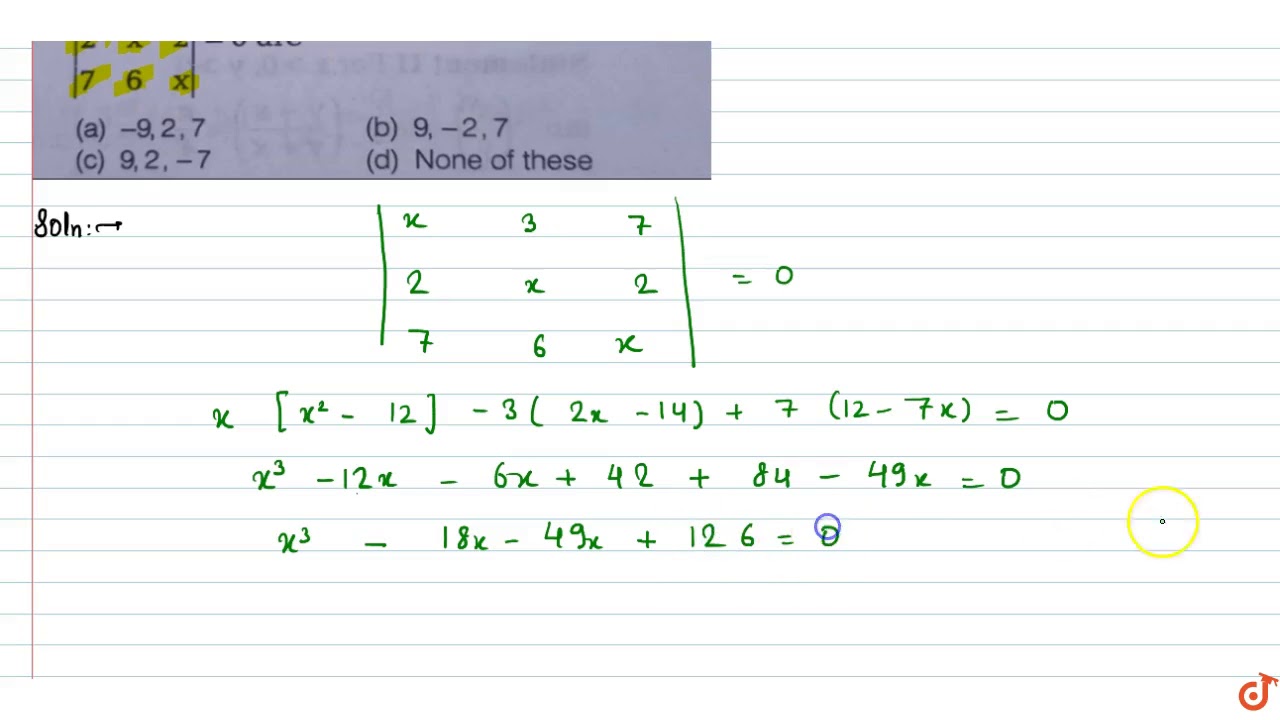 7 6 x
(a) –9, 2, 7 (b) 9, –2, 7
(c) 9, 2, –7 (d) None of these
Soln:→
x 3 7
2 x 2 = 0
7 6 x
x [x² - 12] - 3( 2x - 14) + 7 (12 - 7x) = 0
x³ - 12x - 6x + 42 + 84 - 49x = 0
x³ - 18x - 49x + 126 = 0